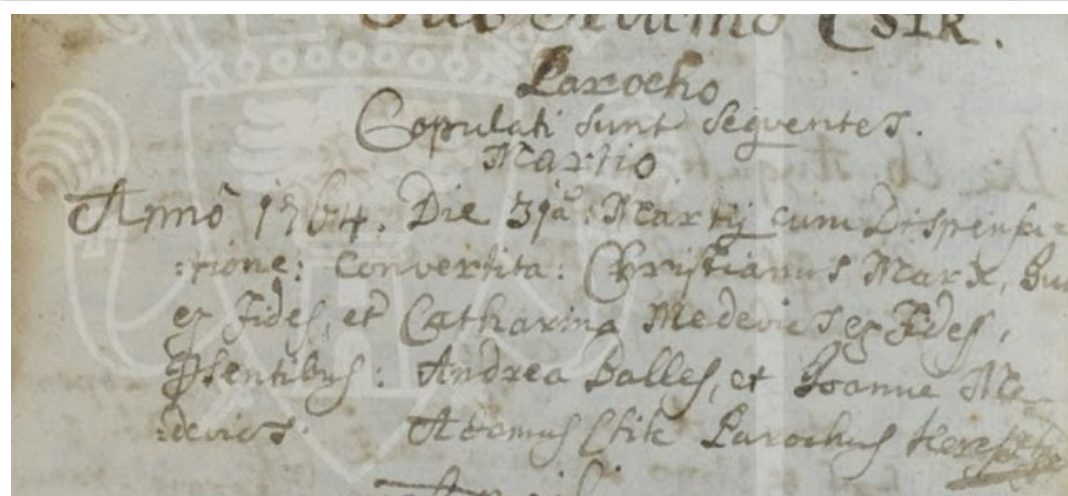 Sub Adamo CSIK.
Parocho
Copulati sunt seqventes.
Martio
Annô 1764. Die 31â: Martij cum Dispensa-
:tione: Convertita: Christianus Marx,
ex Fides, et Catharina Medevics ex Fides,
Psentibus: Andrea Balles, et Joanne Me-
:devics. Adamus Csik Parochus